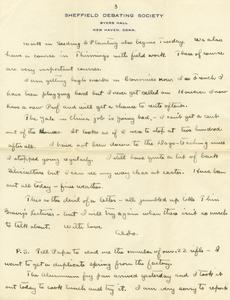 3
SHEFFIELD DEBATING SOCIETY
BYERS HALL
NEW HAVEN, CONN.
work in Seeding & Planting also begins Tuesday. We also
have a course in Thinnings with field work. These of course
are very important courses.
I am getting high marks in Economics now
have been plugging hard but I never get called on. However I now
have a new Prof and will get a chance to recite oftener.
The Yale in China job is going bad - I can't get a cent
out of the House. It looks as if I were to stop at two hundred
after all. I have not been down to the Dago-teaching since
I stopped going regularly. I still have quite a bit of back
Silviculture but I can see my way clear at easter. Have been
out all today - fine weather.
This is the devil of a letter - all jumbled up like Trini
Gowing's lectures - but I will try again when there is so much
to talk about. With love
P.S. Tell Papa to send me the number of our .22 rifle - I
want to get a duplicate spring from the factory.
The Aluminum fry pan arrived yesterday and I took it
out today to cook lunch and try it. I am very sorry to report